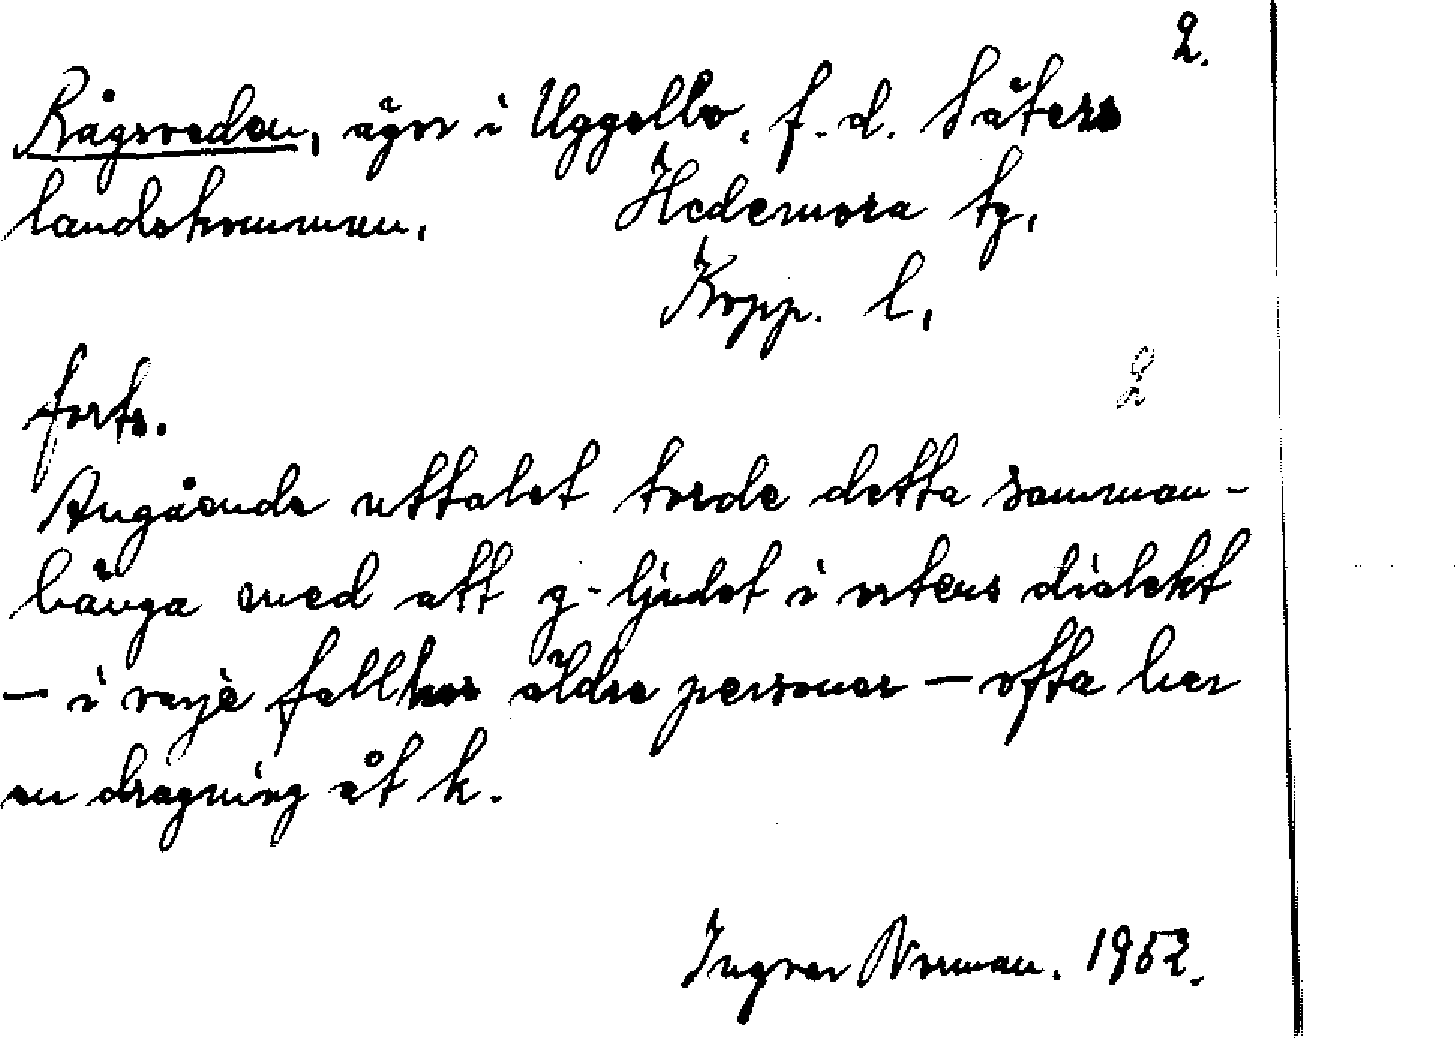 2.
Rågsveden, ägor i Uggelbo, f.d. Säters
landskommun.  Hedemora tg,
Kopp. l,
2
forts.
Angående uttalet torde detta samman-
hänga med att g-ljudet i ortens dialekt
– i varje fall hos äldre personer – ofta har
en dragning åt k.
Ingvar Norman. 1952.